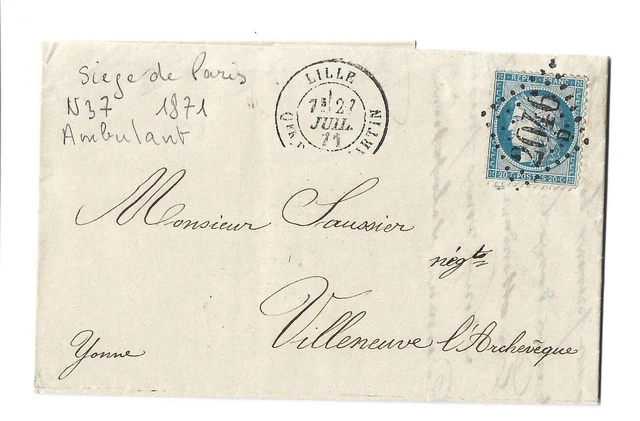 Siege de Paris
N37 1871
Ambulant
LILLE
7E 27
JUIL.
71
MARTIN
REPUB. FRANC.
2046
20 C POSTES 20 C
Monsieur Saussier
négts
Villeneuve l'Archevêque
Yonne